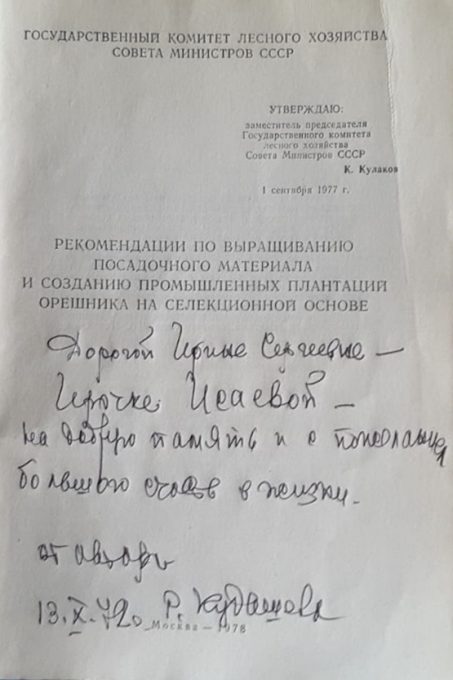 ГОСУДАРСТВЕННЫЙ КОМИТЕТ ЛЕСНОГО ХОЗЯЙСТВА
СОВЕТА МИНИСТРОВ СССР
УТВЕРЖДАЮ:
заместитель председателя
Государственного комитета
лесного хозяйства
Совета Министров СССР
К. Кулаков
1 сентября 1977 г.
РЕКОМЕНДАЦИИ ПО ВЫРАЩИВАНИЮ
ПОСАДОЧНОГО МАТЕРИАЛА
И СОЗДАНИЮ ПРОМЫШЛЕННЫХ ПЛАНТАЦИЙ
ОРЕШНИКА НА СЕЛЕКЦИОННОЙ ОСНОВЕ
Дорогой Ирине Сергеевне —
Ирочке Исаевой —
на добрую память и с
большого в жизни.
от автора
13.X. Р. Кудашова
Москва — 1978